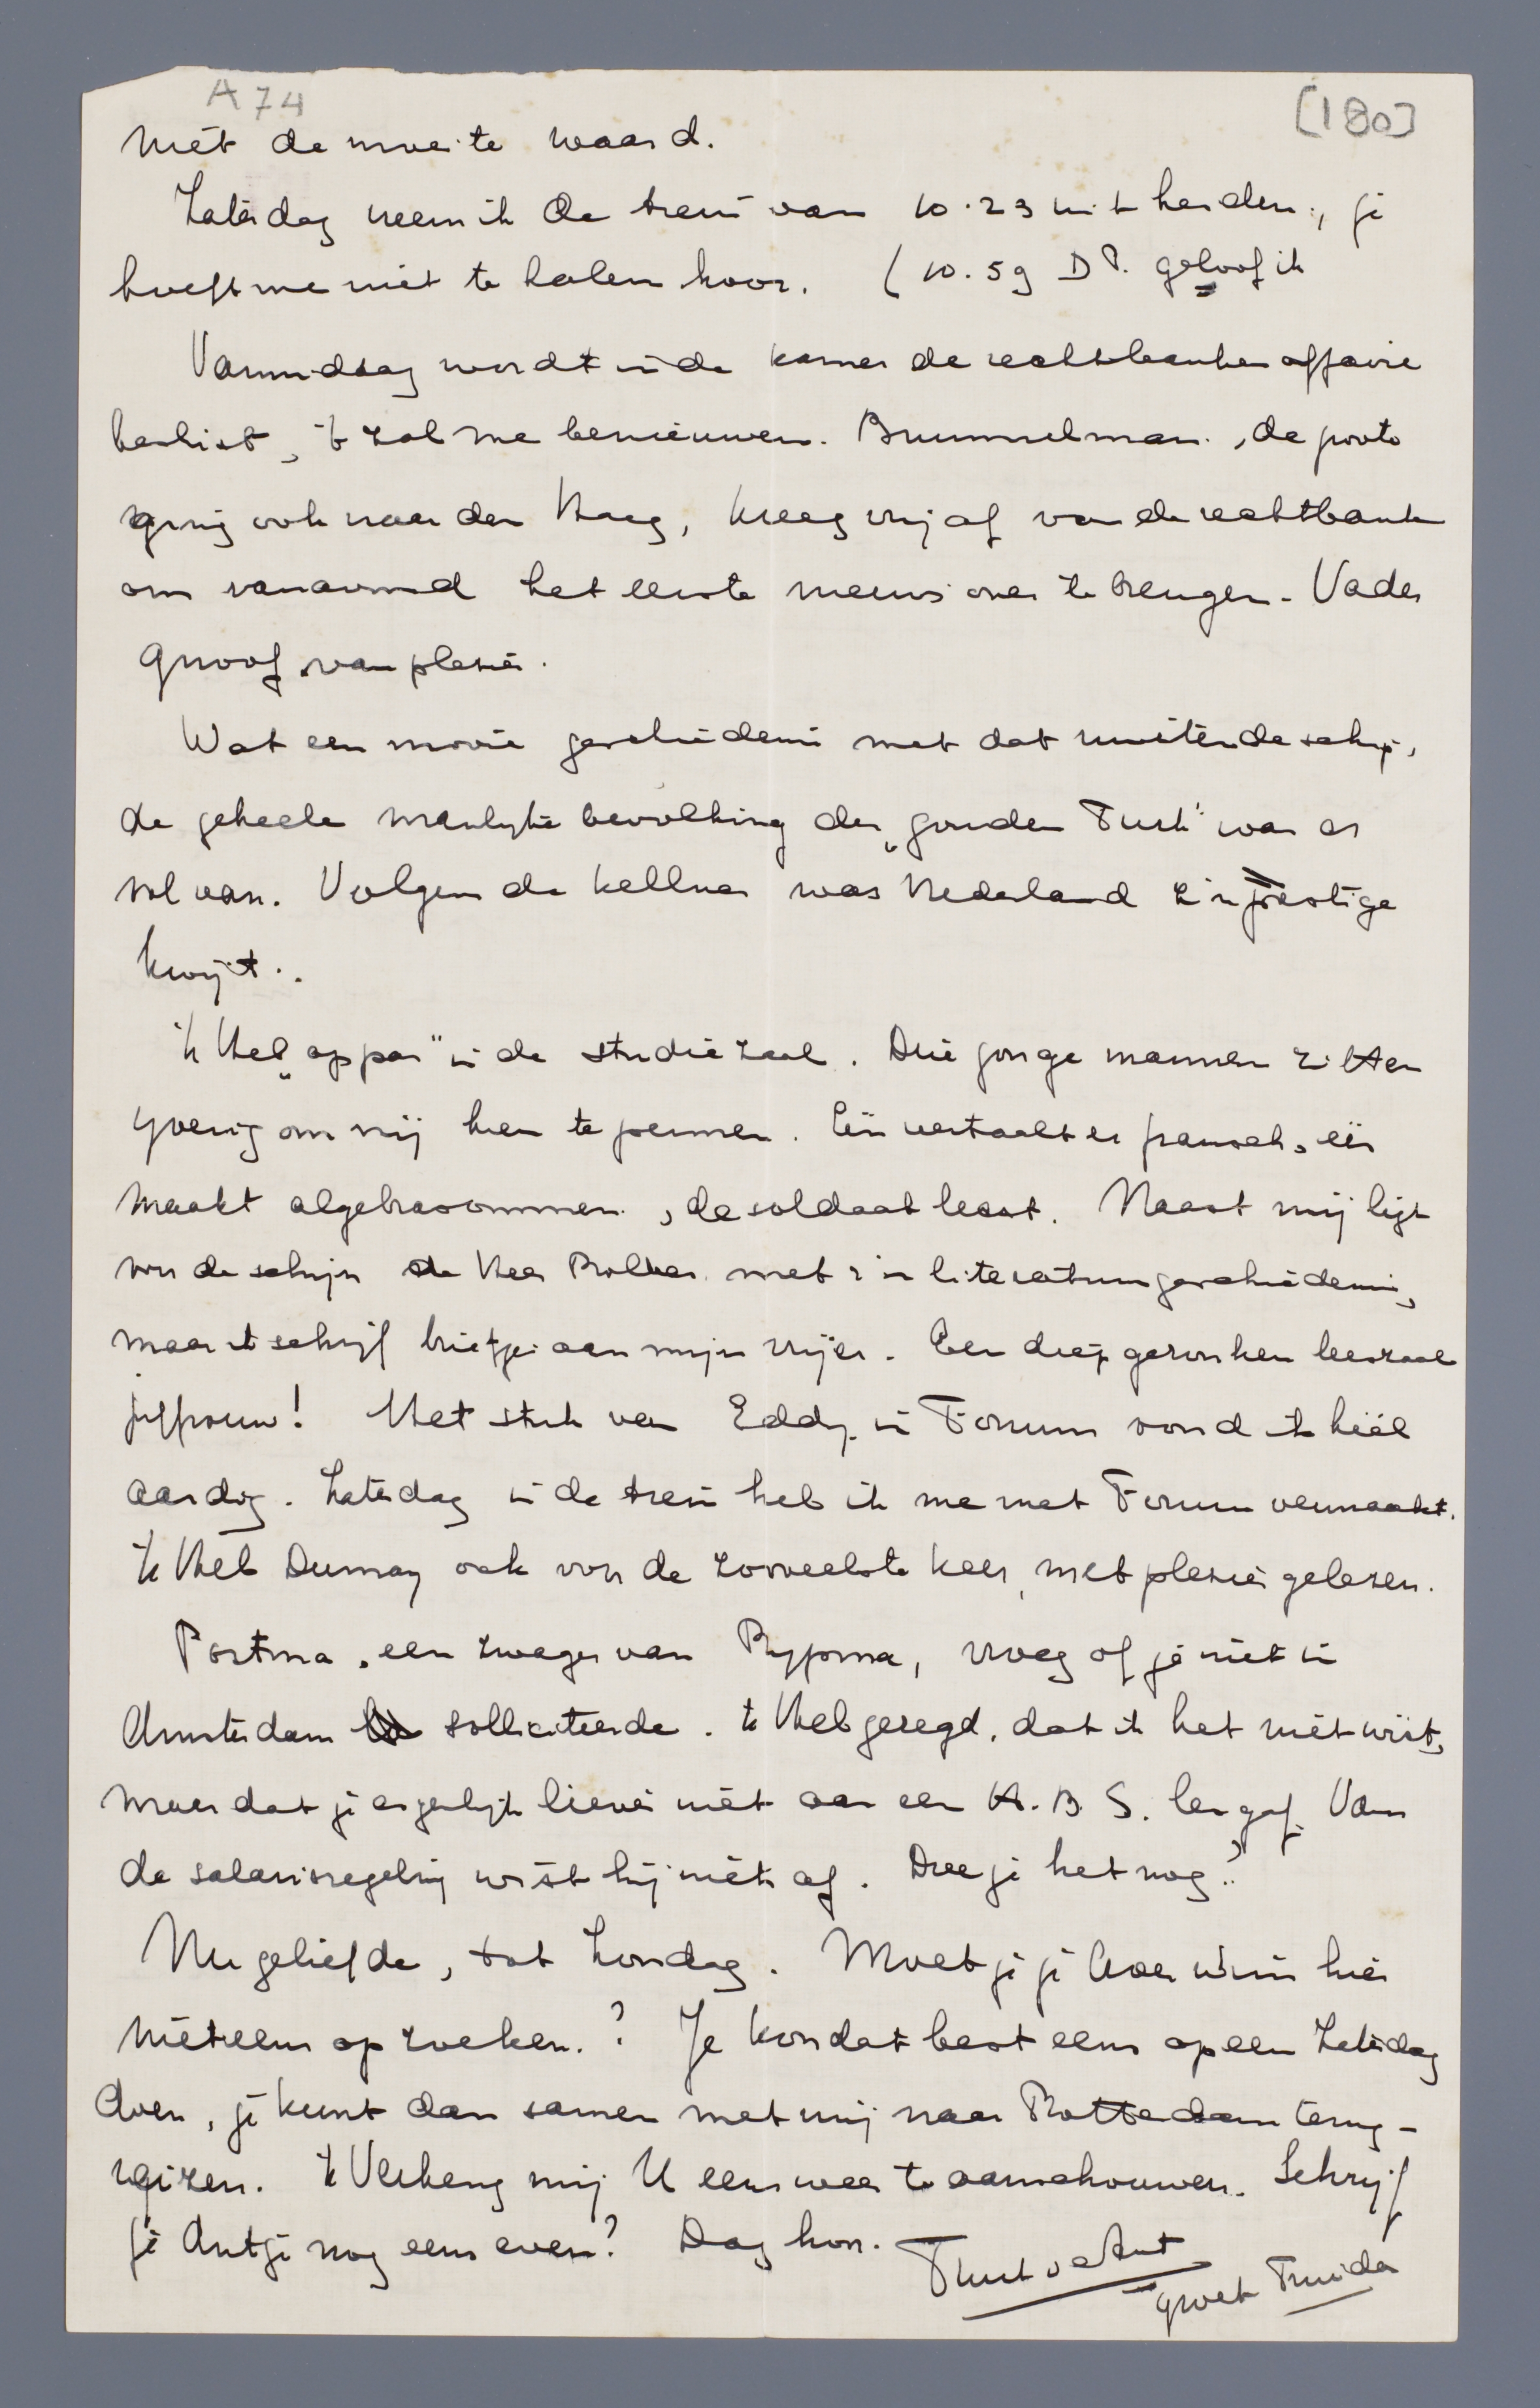 A 74
[180]
niet de moeite waard.
Zaterdag neem ik de trein van 10.23 uit Leiden, je
hoeft me niet te halen hoor. (10.59 D.P. geloof ik
Vanmiddag wordt in de kamer de rechtbanken affaire
beslist, 't zal me benieuwen. Brummelman, de porto
ging ook naar den Haag, kreeg vrij af van de rechtbank
om vanavond het eerste nieuws over te brengen. Vader
gnoof van plezier.
Wat een mooie geschiedenis met dat muitende schip,
de geheele manlyke bevolking der „gouden Turk" was er
vol van. Volgens de kellner was Nederland z'n prestige
kwijt..
'k Heb „appar" in de studiezaal. Drie jonge mannen zitten
yverig om mij heen te pennen. Eén vertaalt er fransch, één
maakt algebrasommen, de soldaat leest. Naast mij ligt
voor de schijn de Heer Prolker met z'n literatuurgeschiedenis,
maar ik schrijf briefjes aan mijn vrijer. Een diep gezonken leeszaal
juffrouw! Het stuk van Eddy in Forum vond ik héél
aardig. Zaterdag in de trein heb ik me met Forum vermaakt.
'k Heb Dumay ook voor de zooveelste keer met plezier gelezen.
Postma, een zwager van Rypma, vroeg of je niet in
Amsterdam solliciteerde. 'k Heb gezegd, dat ik het niet wist,
maar dat je eigenlijk liever niet aan een H.B.S. les gaf. Van
de salarisregeling wist hij niets af. Doe je het nog?
Nu geliefde, tot Zondag. Moet je je hier
niet eens opzoeken.? Je kon dat best eens op een Zaterdag
doen, je kunt dan samen met mij naar Rotterdam terug-
reizen. 'k Verheug mij U eens weer te aanschouwen. Schrijf
je Antje nog eens even? Dag hoor.
Groet Truida